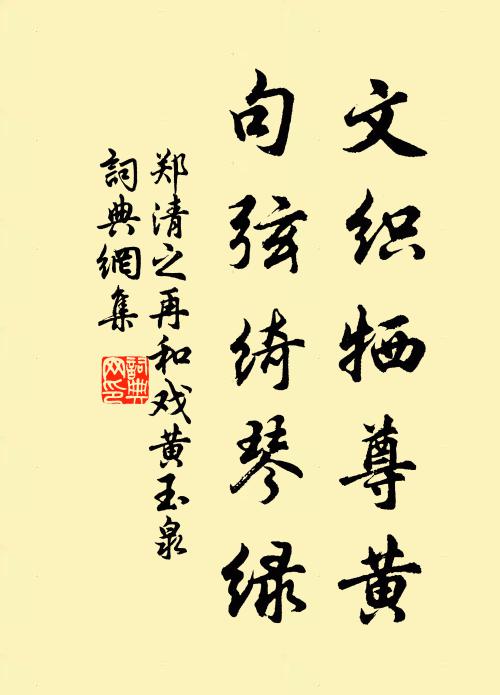 文织牺尊黄
句弦绮琴绿
郑清之再和戏黄玉泉
詞典網集
詞典
网印